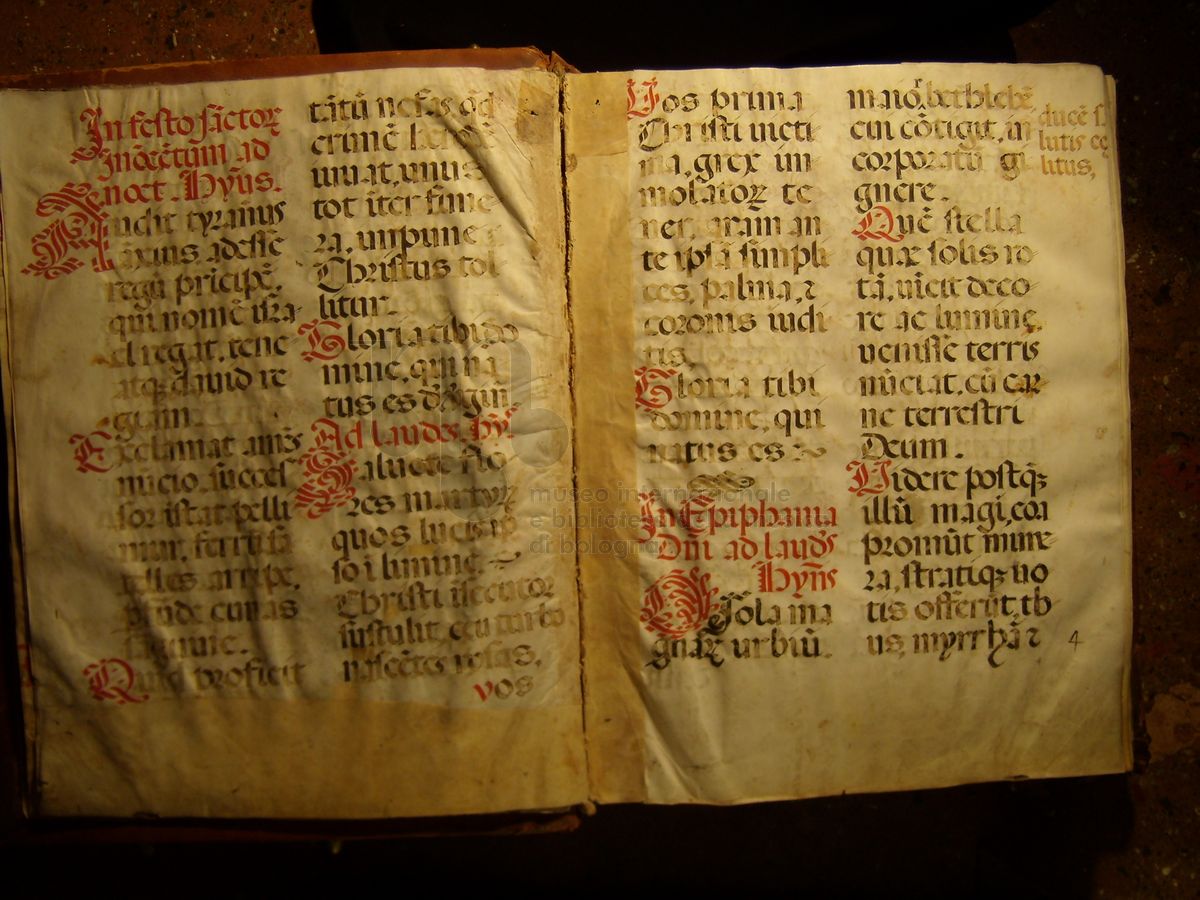 In festo sāctoꝝ
Inocētum ad
noct. Hyms.
Audit tyranus
āxius adesse
regū prīcipē,
qui nomē isra-
el regat, tene
atqꝫ david re
giam.
Exclamat amēs
nūcio, succes
sor īstat pelli
mur,
satelles
perfunde cunas
sanguine.
Quid proficit
tātū nefas qd
crimē
iuuat, unus
tot īter fune
ra, impune
Christus tol
litur.
Gloria tibi do
mine, qui na
tus es de virgin
Ad laudes. hy.
Salvete flo
res martyꝝ
quos lucis ip
so ī limine,
Christi īsecutor
sustulit, ceu turbo
nascētes rosas.
vos
Vos prima
Christi victi
ma, grex im
molatoꝝ te
ner, aram an
te ipsā simpli
ces, palma, ꝛ
coronis ludi
tis.
Gloria tibi
domine, qui
natus es
In Epiphania
Dni ad laudes
Hyms
O Sola ma
gnaꝝ urbiū.
maioꝝ. bethlehē,
cui cōtigit,
ducē sa
lutis cę
litus,
in
corporatū gi
gnere.
Quē stella
quæ solis ro
tā, vīcit deco
re ac lumine,
venisse terris
nūciat, cū car
ne terrestri
Deum.
Videre postqꝫ
illū magi, eoa
promūt mune
ra, stratiqꝫ vo
tis offerūt, th
us, myrrhā ꝛ
4
museo internazionale
e biblioteca
di bologna